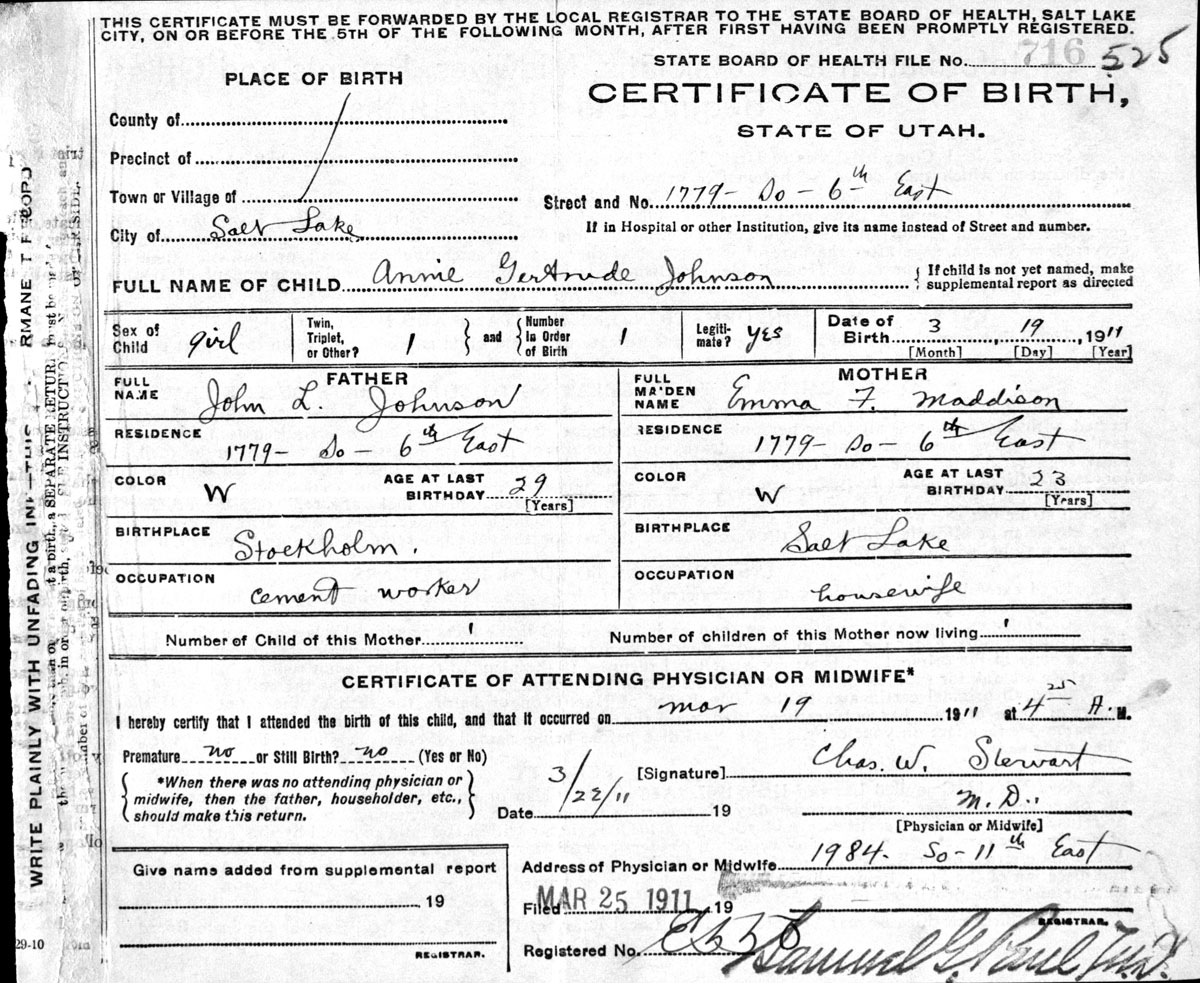 THIS CERTIFICATE MUST BE FORWARDED BY THE LOCAL REGISTRAR TO THE STATE BOARD OF HEALTH, SALT LAKE
CITY, ON OR BEFORE THE 5TH OF THE FOLLOWING MONTH, AFTER FIRST HAVING BEEN PROMPTLY REGISTERED.
STATE BOARD OF HEALTH FILE No. 716 525
PLACE OF BIRTH
CERTIFICATE OF BIRTH,
STATE OF UTAH.
County of
Precinct of
Town or Village of
Street and No. 1779- So - 6th East
City of Salt Lake
If in Hospital or other Institution, give its name instead of Street and number.
FULL NAME OF CHILD Annie Gertrude Johnson
{ If child is not yet named, make
supplemental report as directed
Sex of Child girl
Twin, Triplet, or Other? 1 } and { Number in Order of Birth 1
Legitimate? yes
Date of Birth 3, 19, 1911
[Month] [Day] [Year]
FATHER
FULL NAME John L. Johnson
RESIDENCE 1779- So - 6th East
COLOR W
AGE AT LAST BIRTHDAY 29
[Years]
BIRTHPLACE Stockholm.
OCCUPATION cement worker
MOTHER
FULL MAIDEN NAME Emma F. Maddison
RESIDENCE 1779- So - 6th East
COLOR W
AGE AT LAST BIRTHDAY 23
[Years]
BIRTHPLACE Salt Lake
OCCUPATION housewife
Number of Child of this Mother 1
Number of children of this Mother now living 1
CERTIFICATE OF ATTENDING PHYSICIAN OR MIDWIFE*
I hereby certify that I attended the birth of this child, and that it occurred on mar 19 1911 at 4 25 A. M.
Premature no or Still Birth? no (Yes or No)
{ *When there was no attending physician or
midwife, then the father, householder, etc.,
should make this return. }
[Signature] Chas. W. Stewart
Date 3/22/11 19
M.D.,
[Physician or Midwife]
Address of Physician or Midwife 1984- So - 11th East
Give name added from supplemental report
19
REGISTRAR.
Filed MAR 25 1911 19
REGISTRAR.
Registered No.
Samuel G. Paul
29-10
WRITE PLAINLY WITH UNFADING INK—THIS